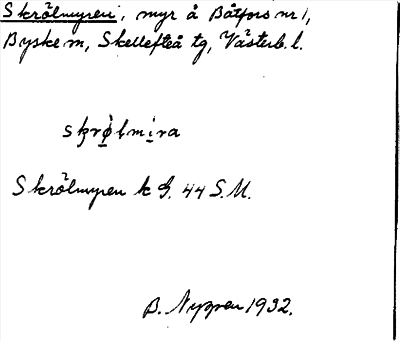 Skrölmyren, myr å Båtfors nr 1,
Byske sn, Skellefteå tg, Västerb. l.
skrö̀lmi̱ra
Skrölmyren k G. 44 S.M.
B. Nyman 1932.